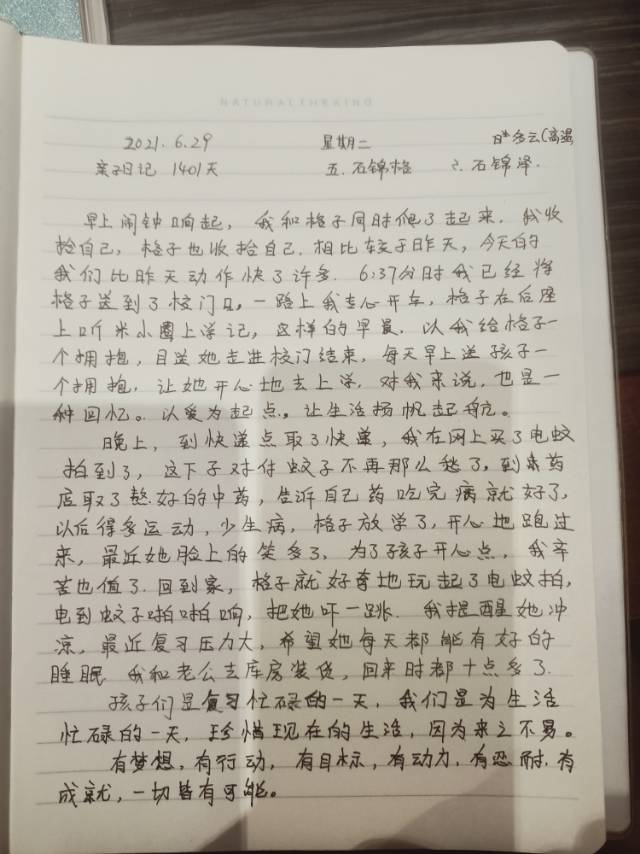 NATURALTHRAING
2021.6.29 星期二 多云(高温
亲子日记 1401天 五.石锦格 石锦泽.
早上闹钟响起，我和格子同时爬了起来.我收
拾自己，格子也收拾自己.相比较于昨天，今天的
我们比昨天动作快了许多.6:37分时我已经将
格子送到了校门口，一路上我专心开车，格子在后座
上听米小圈上学记，这样的早晨.以我给格子一
个拥抱，目送她走进校门结束，每天早上送孩子一
个拥抱，让她开心地去上学.对我来说，也是一
种回忆。以爱为起点。让生活扬帆起航。
晚上，到快递点取了快递，我在网上买了电蚊
拍到了，这下子对付蚊子不再那么愁了，到来药
店取了熬好的中药，告诉自己药吃完病就好了，
以后得多运动，少生病，格子放学了，开心地跑过
来，最近她脸上的笑多了，为了孩子开心点，我辛
苦也值了.回到家，格子就好奇地玩起了电蚊拍，
电到蚊子啪啪响，把她吓一跳.我提醒她冲
凉，最近复习压力大，希望她每天都能有好的
睡眠.我和老公去库房装货，回来时都十点多了.
孩子们是复习忙碌的一天，我们是为生活
忙碌的一天，珍惜现在的生活，因为来之不易。
有梦想，有行动，有目标，有动力，有忍耐，有
成就，一切皆有可能。